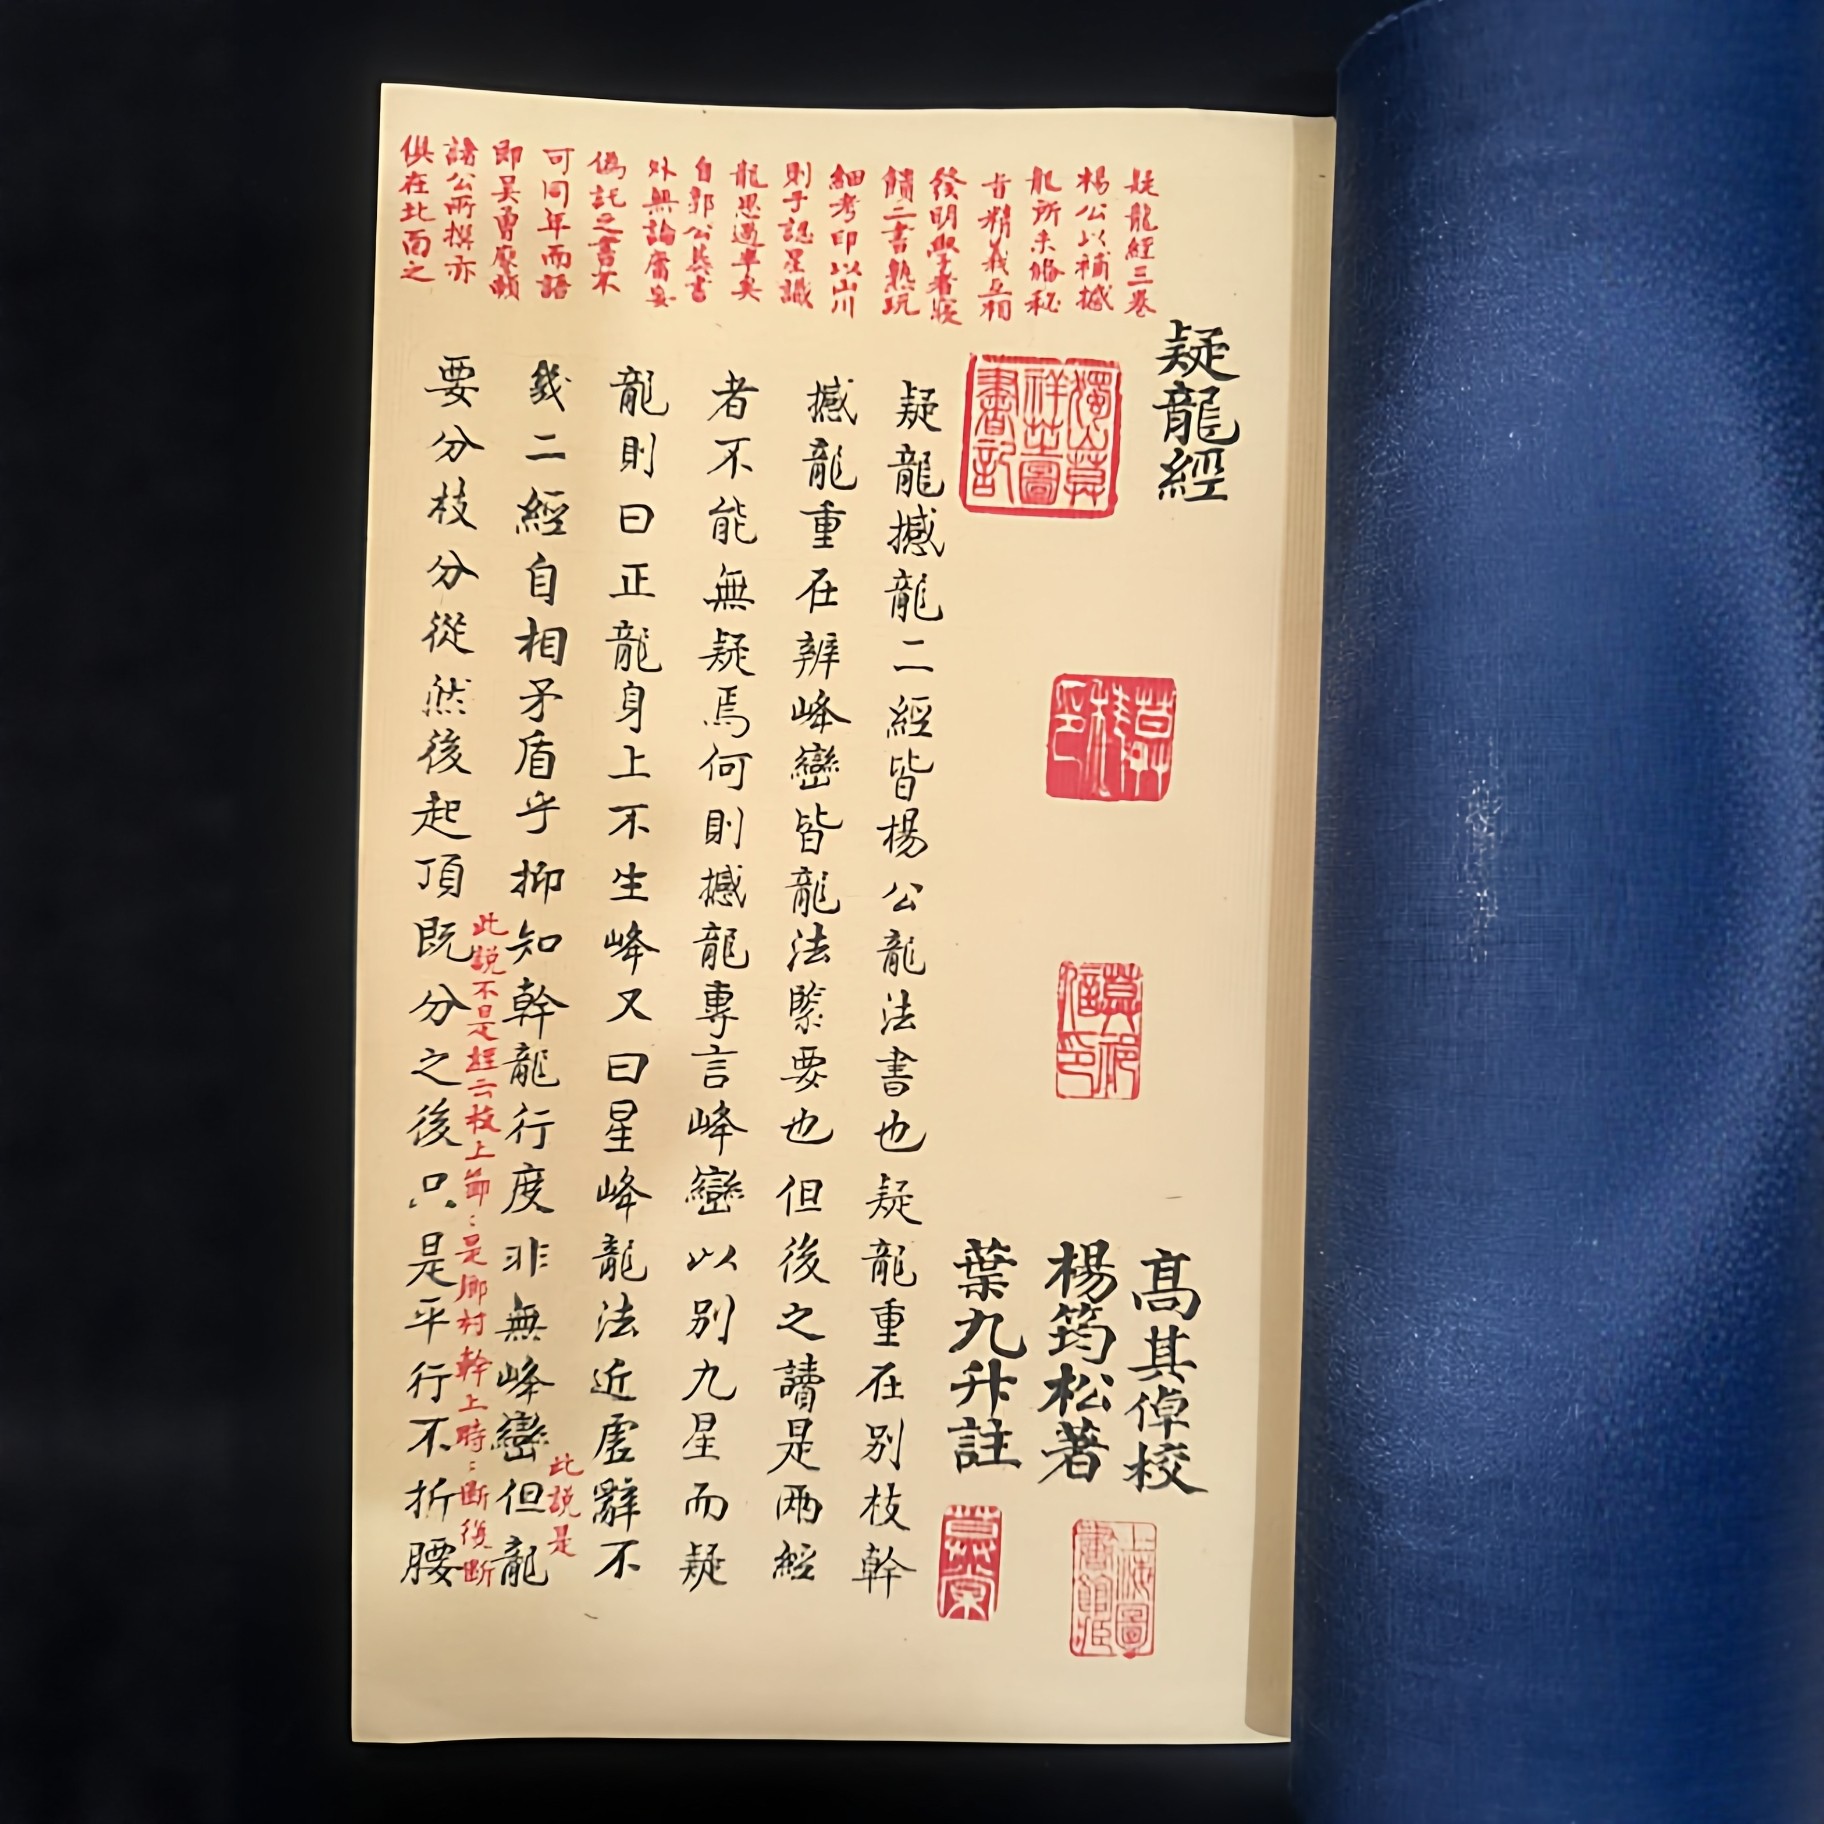 疑龍經
高其倬校
楊筠松著
葉九升註
疑龍經三卷
楊公以補撼
龍所未備秘
旨精義互相
發明學者
二書熟玩
細考印以山川
則于認星識
龍思過半矣
自郭公葬書
外無論庸妄
偽託之書不
可同年而語
即吳廖
諸公所撰亦
俱在北面之
疑龍撼龍二經皆楊公龍法書也疑龍重在別枝幹
撼龍重在辨峰巒皆龍法緊要也但後之讀是兩經
者不能無疑焉何則撼龍專言峰巒以別九星而疑
龍則曰正龍身上不生峰又曰星峰龍法近虛辭不
幾二經自相矛盾乎抑知幹龍行度非無峰巒但龍
此說是
要分枝分從然後起頂既分之後只是平行不折腰
此說不是經云枝上節:是鄉村幹上時:斷復斷
獨山莫
祥芝圖
書記
莫棠
上海圖
書館藏